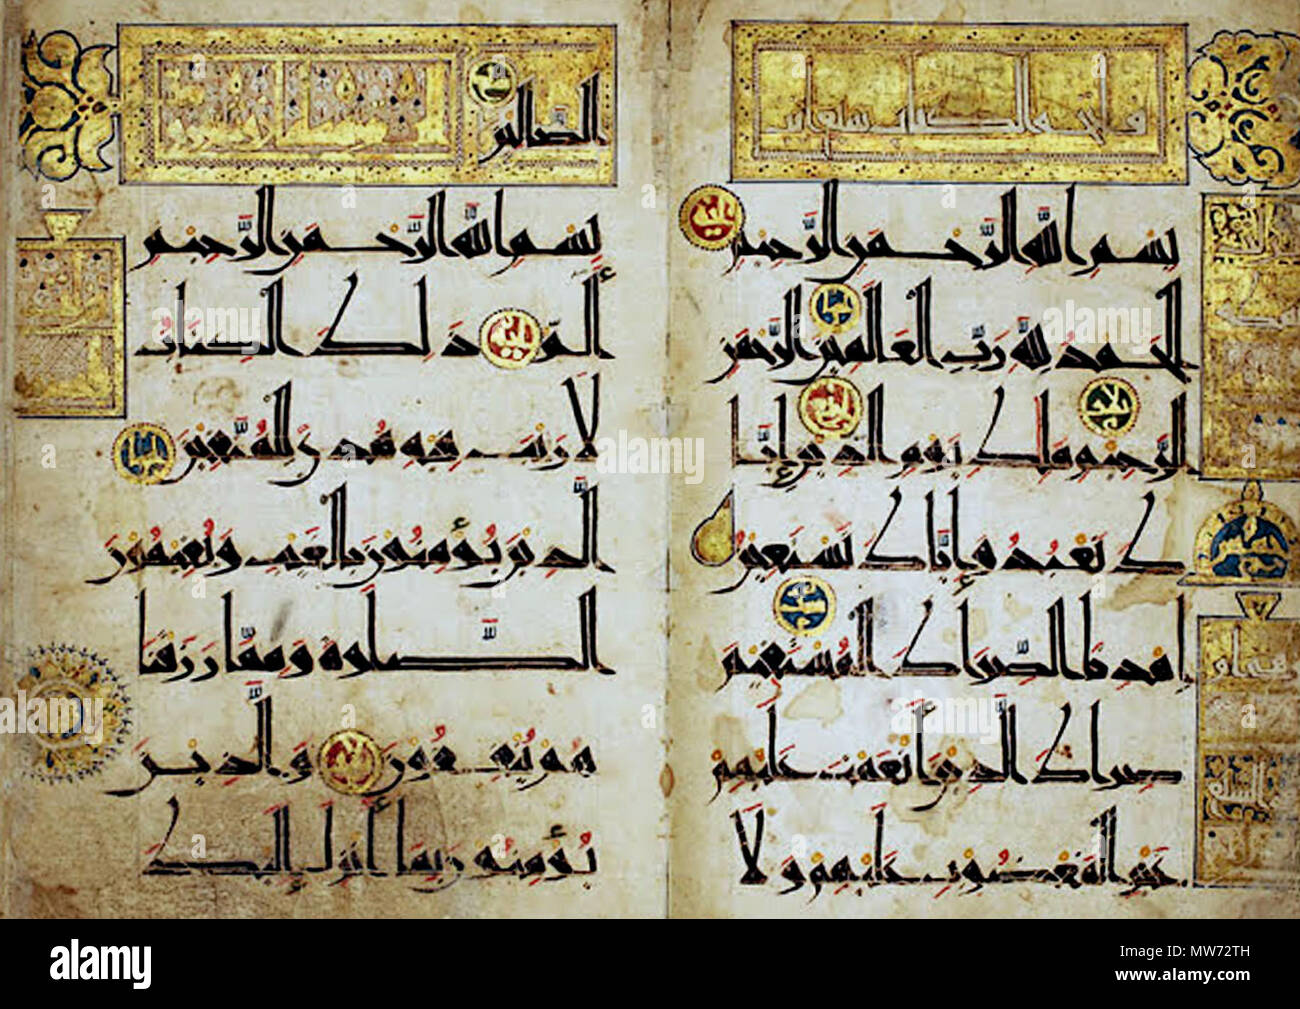 فاتحة الكتاب سبع آيات
بِسْمِ اللَّهِ الرَّحْمَنِ الرَّحِيمِ
الْحَمْدُ لِلَّهِ رَبِّ الْعَالَمِينَ الرَّحْمَنِ
الرَّحِيمِ مَلِكِ يَوْمِ الدِّينِ إِيَّا
كَ نَعْبُدُ وَإِيَّاكَ نَسْتَعِينُ
اِهْدِنَا الصِّرَاطَ الْمُسْتَقِيمَ
صِرَاطَ الَّذِينَ أَنْعَمْتَ عَلَيْهِمْ
غَيْرِ الْمَغْضُوبِ عَلَيْهِمْ وَلَا
الضَّالِّينَ
بِسْمِ اللَّهِ الرَّحْمَنِ الرَّحِيمِ
الٓمّ ذَلِكَ الْكِتَابُ
لَا رَيْبَ فِيهِ هُدًى لِلْمُتَّقِينَ
الَّذِينَ يُؤْمِنُونَ بِالْغَيْبِ وَيُقِيمُونَ
الصَّلَوٰةَ وَمِمَّا رَزَقْنَا
هُمْ يُنْفِقُونَ وَالَّذِينَ
يُؤْمِنُونَ بِمَا أُنْزِلَ إِلَيْكَ
alamy
alamy stock photo
MW72TH
www.alamy.com